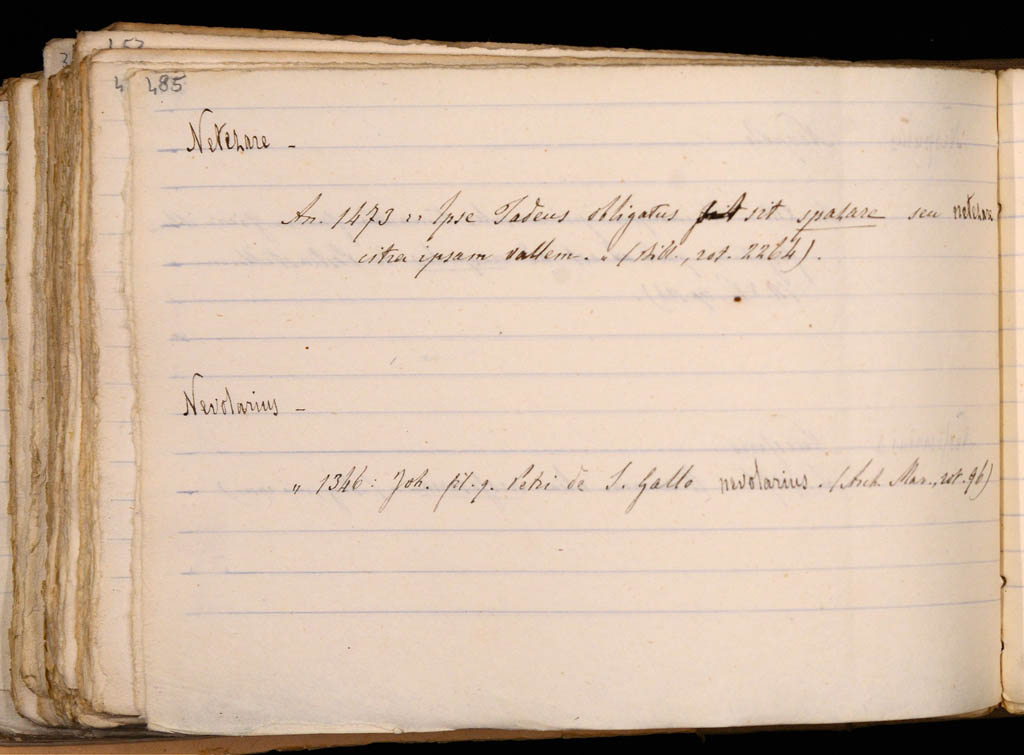 485
Netezare -
An. 1473 :: Ipse Tadeus obligatus sit spazare seu netezare
citra ipsam vallem. " (Mill., rot. 2264).
Nevolarius -
" 1346: Joh. fil. q. Petri de S. Gallo nevolarius. (Arch. Mar., rot. 96)